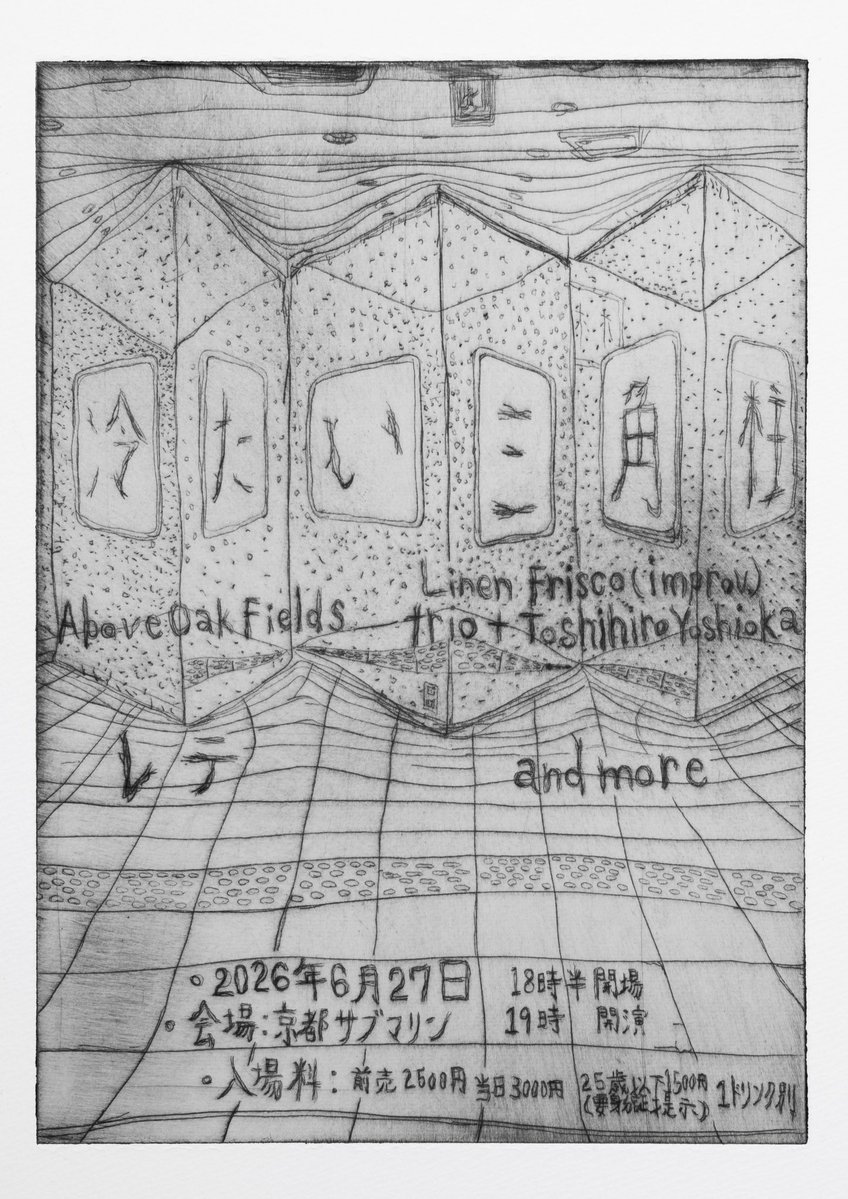 冷たい三角柱
Above Oak Fields
Linen Frisco(improv.)
trio + Toshihiro Yoshioka
レテ
and more
・2026年6月27日 18時半 開場
・会場:京都サブマリン 19時 開演
・入場料:前売2500円 当日3000円 25歳以下1500円 1ドリンク別
(要身分証提示)